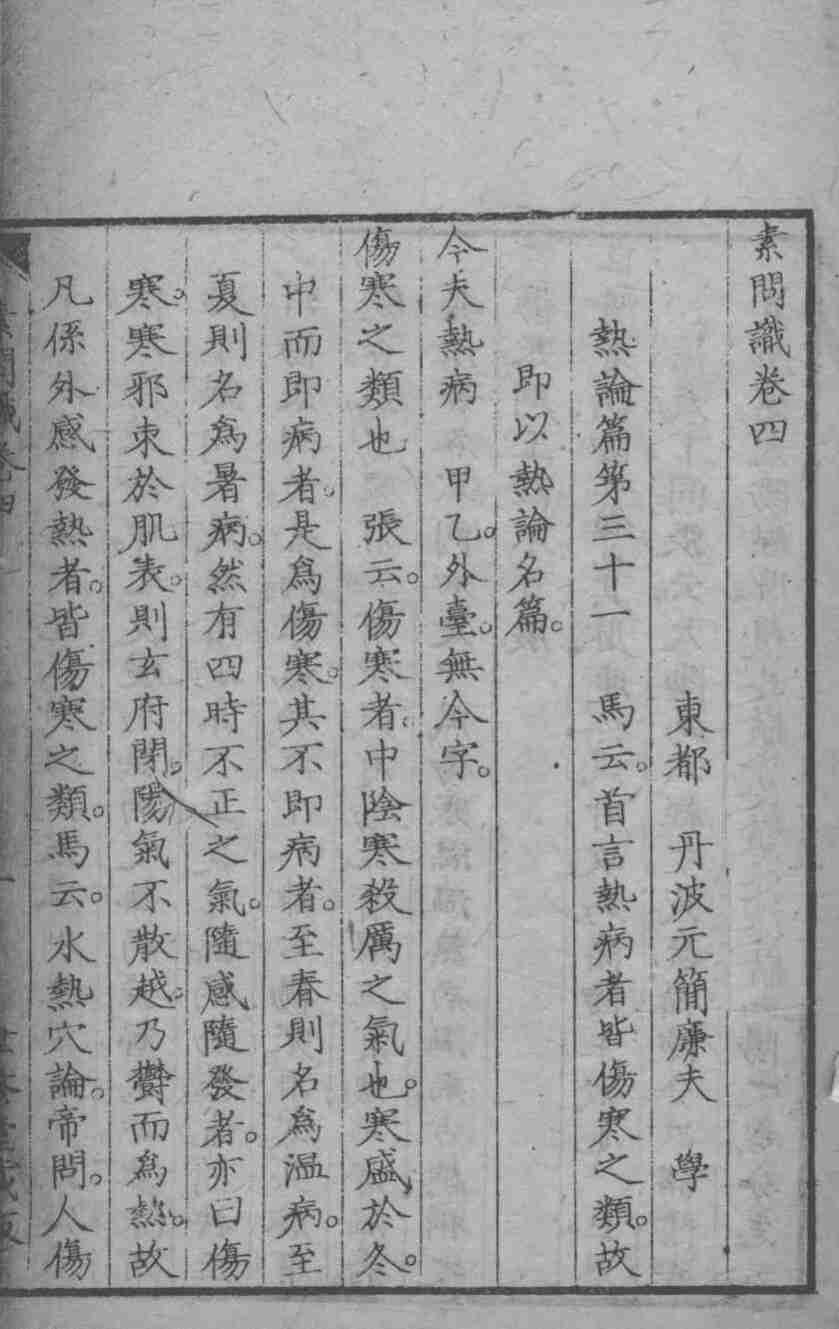 素問識卷四
東都 丹波元簡廉夫 學
熱論篇第三十一 馬云。首言熱病者皆傷寒之類。故
即以熱論名篇。
今夫熱病 甲乙。外臺。無今字。
傷寒之類也 張云。傷寒者。中陰寒殺厲之氣也。寒盛於冬。
中而即病者。是爲傷寒。其不即病者。至春則名爲溫病。至
夏則名爲暑病。然有四時不正之氣。隨感隨發者。亦曰傷
寒。寒邪束於肌表。則玄府閉。陽氣不散越。乃鬱而爲熱。故
凡係外感發熱者。皆傷寒之類。馬云。水熱穴論。帝問。人傷